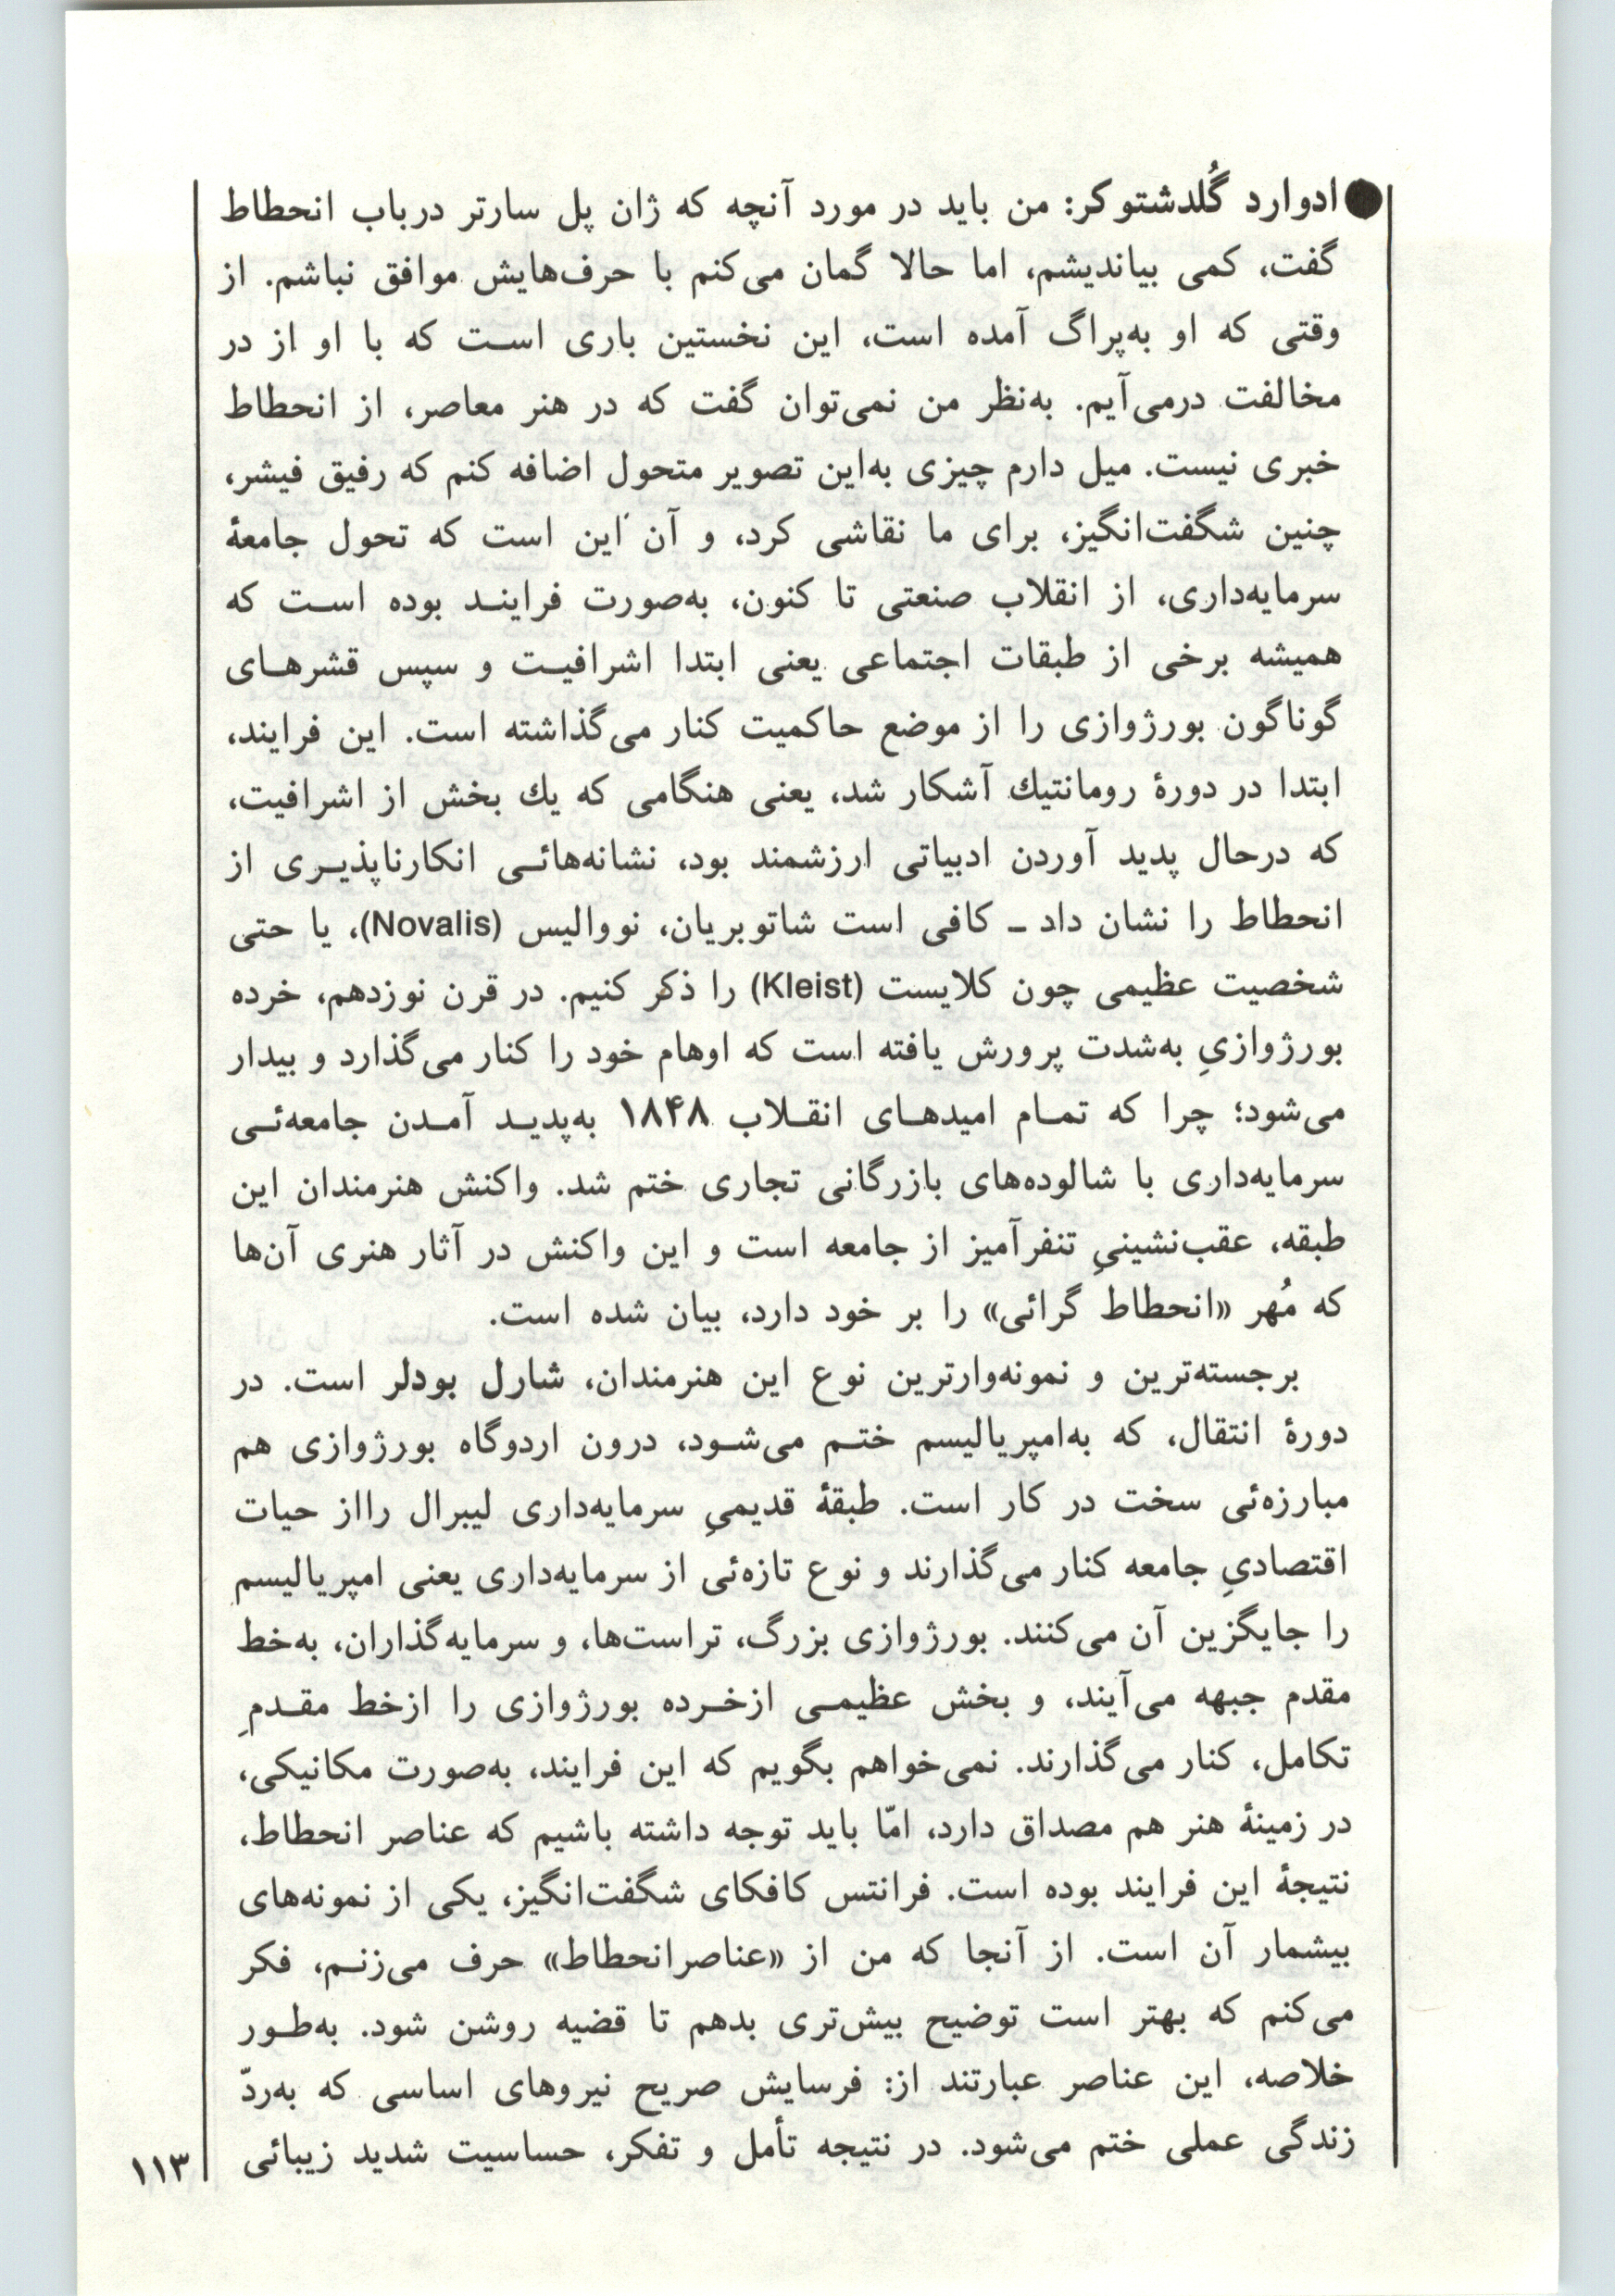 ● ادوارد گُلدشتوکر: من باید در مورد آنچه که ژان پل سارتر درباب انحطاط
گفت، کمی بیاندیشم، اما حالا گمان می‌کنم با حرف‌هایش موافق نباشم. از
وقتی که او به‌پراگ آمده است، این نخستین باری است که با او از در
مخالفت درمی‌آیم. به‌نظر من نمی‌توان گفت که در هنر معاصر، از انحطاط
خبری نیست. میل دارم چیزی به‌این تصویر متحول اضافه کنم که رفیق فیشر،
چنین شگفت‌انگیز، برای ما نقاشی کرد، و آن این است که تحول جامعهٔ
سرمایه‌داری، از انقلاب صنعتی تا کنون، به‌صورت فرایند بوده است که
همیشه برخی از طبقات اجتماعی یعنی ابتدا اشرافیت و سپس قشرهای
گوناگون بورژوازی را از موضع حاکمیت کنار می‌گذاشته است. این فرایند،
ابتدا در دورهٔ رومانتیك آشکار شد، یعنی هنگامی که یك بخش از اشرافیت،
که درحال پدید آوردن ادبیاتی ارزشمند بود، نشانه‌هائی انکارناپذیری از
انحطاط را نشان داد ـ کافی است شاتوبریان، نووالیس (Novalis)، یا حتی
شخصیت عظیمی چون کلایست (Kleist) را ذکر کنیم. در قرن نوزدهم، خرده
بورژوازیِ به‌شدت پرورش یافته است که اوهام خود را کنار می‌گذارد و بیدار
می‌شود؛ چرا که تمام امیدهای انقلاب ۱۸۴۸ به‌پدید آمدن جامعه‌ئی
سرمایه‌داری با شالوده‌های بازرگانی تجاری ختم شد. واکنش هنرمندان این
طبقه، عقب‌نشینیِ تنفرآمیز از جامعه است و این واکنش در آثار هنری آن‌ها
که مُهر «انحطاط گرائی» را بر خود دارد، بیان شده است.
برجسته‌ترین و نمونه‌وارترین نوع این هنرمندان، شارل بودلر است. در
دورهٔ انتقال، که به‌امپریالیسم ختم می‌شود، درون اردوگاه بورژوازی هم
مبارزه‌ئی سخت در کار است. طبقهٔ قدیمیِ سرمایه‌داری لیبرال رااز حیات
اقتصادیِ جامعه کنار می‌گذارند و نوع تازه‌ئی از سرمایه‌داری یعنی امپریالیسم
را جایگزین آن می‌کنند. بورژوازی بزرگ، تراست‌ها، و سرمایه‌گذاران، به‌خط
مقدم جبهه می‌آیند، و بخش عظیمی ازخرده بورژوازی را ازخط مقدمِ
تکامل، کنار می‌گذارند. نمی‌خواهم بگویم که این فرایند، به‌صورت مکانیکی،
در زمینهٔ هنر هم مصداق دارد، امّا باید توجه داشته باشیم که عناصر انحطاط،
نتیجهٔ این فرایند بوده است. فرانتس کافکای شگفت‌انگیز، یکی از نمونه‌های
بیشمار آن است. از آنجا که من از «عناصرانحطاط» حرف می‌زنم، فکر
می‌کنم که بهتر است توضیح بیش‌تری بدهم تا قضیه روشن شود. به‌طور
خلاصه، این عناصر عبارتند از: فرسایش صریح نیروهای اساسی که به‌ردّ
زندگی عملی ختم می‌شود. در نتیجه تأمل و تفکر، حساسیت شدید زیبائی
۱۱۳